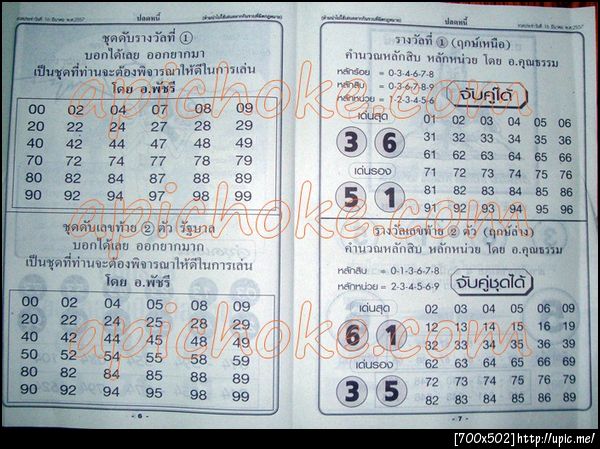 งวดประจำวันที่ 16 มีนาคม พ.ศ.2557
ปลดหนี้
ชุดดับรางวัลที่ ①
บอกได้เลย ออกยากมา
เป็นชุดที่ท่านจะต้องพิจารณาให้ดีในการเล่น
โดย อ.พัชรี
00 02 04 07 08 09
20 22 24 27 28 29
40 42 44 47 48 49
70 72 74 77 78 79
80 82 84 87 88 89
90 92 94 97 98 99
ชุดดับเลขท้าย ② ตัว รัฐบาล
บอกได้เลย ออกยากมาก
เป็นชุดที่ท่านจะต้องพิจารณาให้ดีในการเล่น
โดย อ.พัชรี
00 02 04 05 08 09
20 22 24 25 28 29
40 42 44 45 48 49
50 52 54 55 58 59
80 82 84 85 88 89
90 92 94 95 98 99
- 6 -
ปลดหนี้
งวดประจำวันที่ 16 มีนาคม พ.ศ.2557
รางวัลที่ ① (ฤกษ์เหนือ)
คำนวณหลักสิบ หลักหน่วย โดย อ.คุณธรรม
หลักร้อย = 0-3-4-6-7-8
หลักสิบ = 0-3-6-7-8-9
หลักหน่วย = 1-2-3-4-5-6
จับคู่ได้
เด่นสุด
3 6
เด่นรอง
5 1
01 02 03 04 05 06
31 32 33 34 35 36
61 62 63 64 65 66
71 72 73 74 75 76
81 82 83 84 85 86
91 92 93 94 95 96
รางวัลเลขท้าย ② ตัว (ฤกษ์ล่าง)
คำนวณหลักสิบ หลักหน่วย โดย อ.คุณธรรม
หลักสิบ = 0-1-3-6-7-8
หลักหน่วย = 2-3-4-5-6-9
จับคู่ชุดได้
เด่นสุด
6 1
เด่นรอง
3 5
02 03 04 05 06 09
12 13 14 15 16 19
32 33 34 35 36 39
62 63 64 65 66 69
72 73 74 75 76 79
82 83 84 85 86 89
- 7 -
apichoke.com
apichoke.com
apichoke.com
[700x502]http://upic.me/